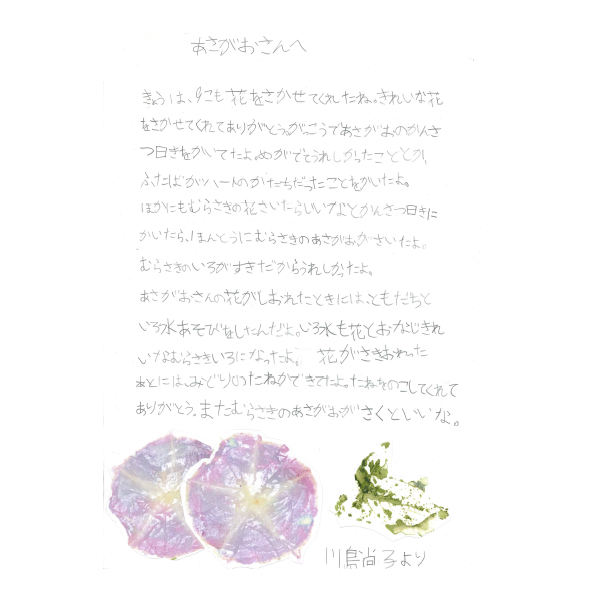 あさがおさんへ
きょうは、9こも花をさかせてくれたね。きれいな花
をさかせてくれてありがとう。がっこうであさがおのかんさ
つ日きをかいてたよ。めがでてうれしかったこととか、
ふたばがハートのかたちだったことをかいたよ。
ほかにもむらさきの花さいたらいいなとかんさつ日きに
かいたら、ほんとうにむらさきのあさがおがさいたよ。
むらさきのいろがすきだからうれしかったよ。
あさがおさんの花がしおれたときには、ともだちと
いろ水あそびをしたんだよ。いろ水も花とおなじきれ
いなむらさきいろになったよ。 花がさきおわった
あとには、みどりのたねができてたよ。たねをのこしてくれて
ありがとう。またむらさきのあさがおがさくといいな。
川島尚子より